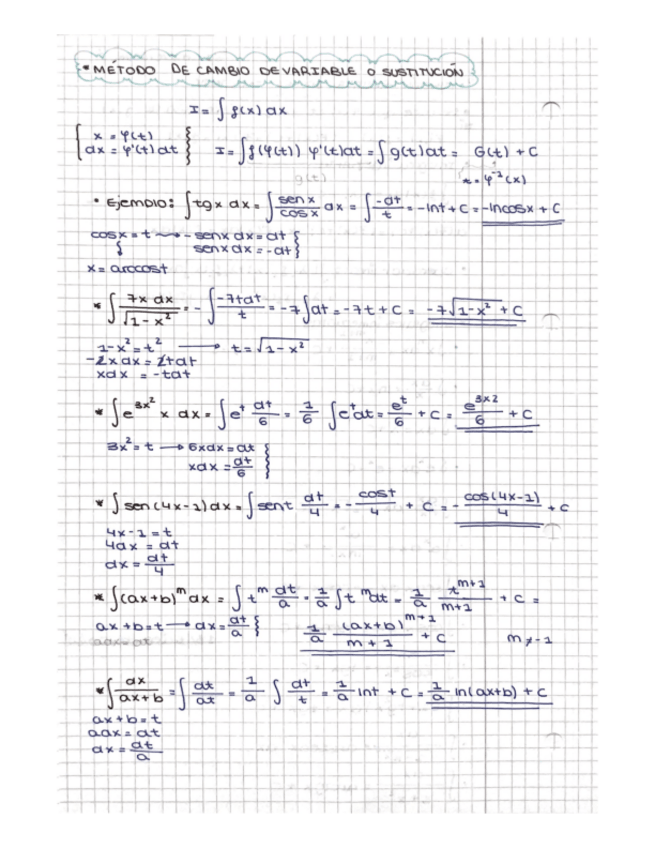 * MÉTODO DE CAMBIO DE VARIABLE O SUSTITUCIÓN
I = ∫ f(x) dx
{ x = φ(t) dx = φ'(t) dt } I = ∫ f(φ(t)) φ'(t) dt = ∫ g(t) dt = G(t) + C
g(t) t = φ⁻¹(x)
• Ejemplo: ∫ tg x dx = ∫ sen x / cos x dx = ∫ -dt / t = -ln t + C = -ln cos x + C
cos x = t → - sen x dx = dt }
sen x dx = -dt }
x = arccos t
* ∫ 7x dx / √(1-x²) = - ∫ -7t dt / t = -7 ∫ dt = -7t + C = -7√(1-x²) + C
1-x² = t² → t = √(1-x²)
-2x dx = 2t dt
x dx = -t dt
* ∫ e^(3x²) x dx = ∫ e^t dt/6 = 1/6 ∫ e^t dt = e^t/6 + C = e^(3x2)/6 + C
3x² = t → 6x dx = dt }
x dx = dt/6 }
* ∫ sen (4x-1) dx = ∫ sen t dt/4 = - cos t/4 + C = - cos(4x-1)/4 + C
4x-1 = t
4dx = dt
dx = dt/4
* ∫ (ax+b)^m dx = ∫ t^m dt/a = 1/a ∫ t^m dt = 1/a t^(m+1)/(m+1) + C =
ax+b = t → dx = dt/a } 1/a (ax+b)^(m+1)/(m+1) + C m ≠ -1
adx = dt
* ∫ dx/(ax+b) = ∫ dt/at = 1/a ∫ dt/t = 1/a ln t + C = 1/a ln(ax+b) + C
ax+b = t
adx = dt
dx = dt/a